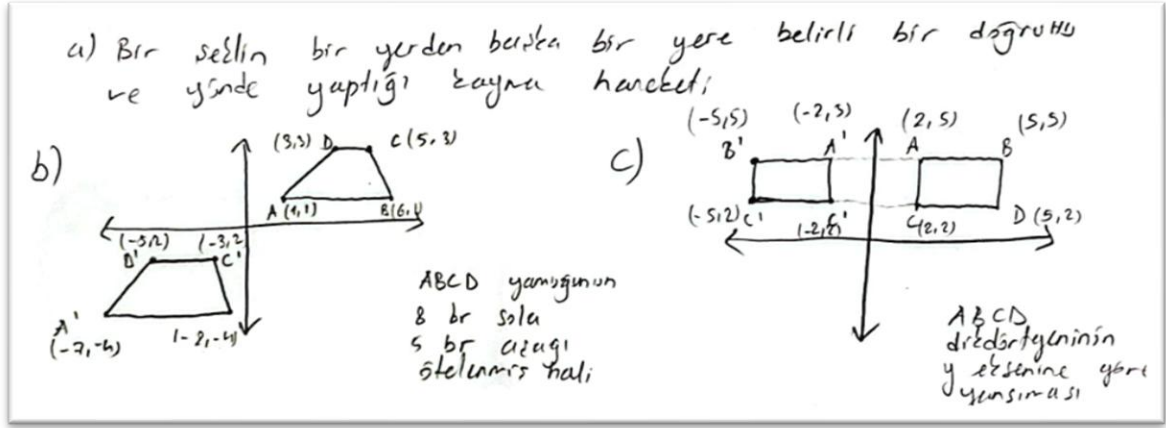 a) Bir şeklin bir yerden başka bir yere belirli bir doğrultu
ve yönde yaptığı kayma hareketi
b)
(3,3) D C (5,3)
A (1,1) B(6,1)
(-5,2) (-3,2
D' C'
A'
(-7,-4) (-2,-4)
ABCD yamuğunun
8 br sola
5 br aşağı
ötelenmiş hali
c)
(-5,5) (-2,5) (2,5) (5,5)
B' A' A B
(-5,2) C' (-2,2) C(2,2) D (5,2)
ABCD
dikdörtgeninin
y eksenine göre
yansıması